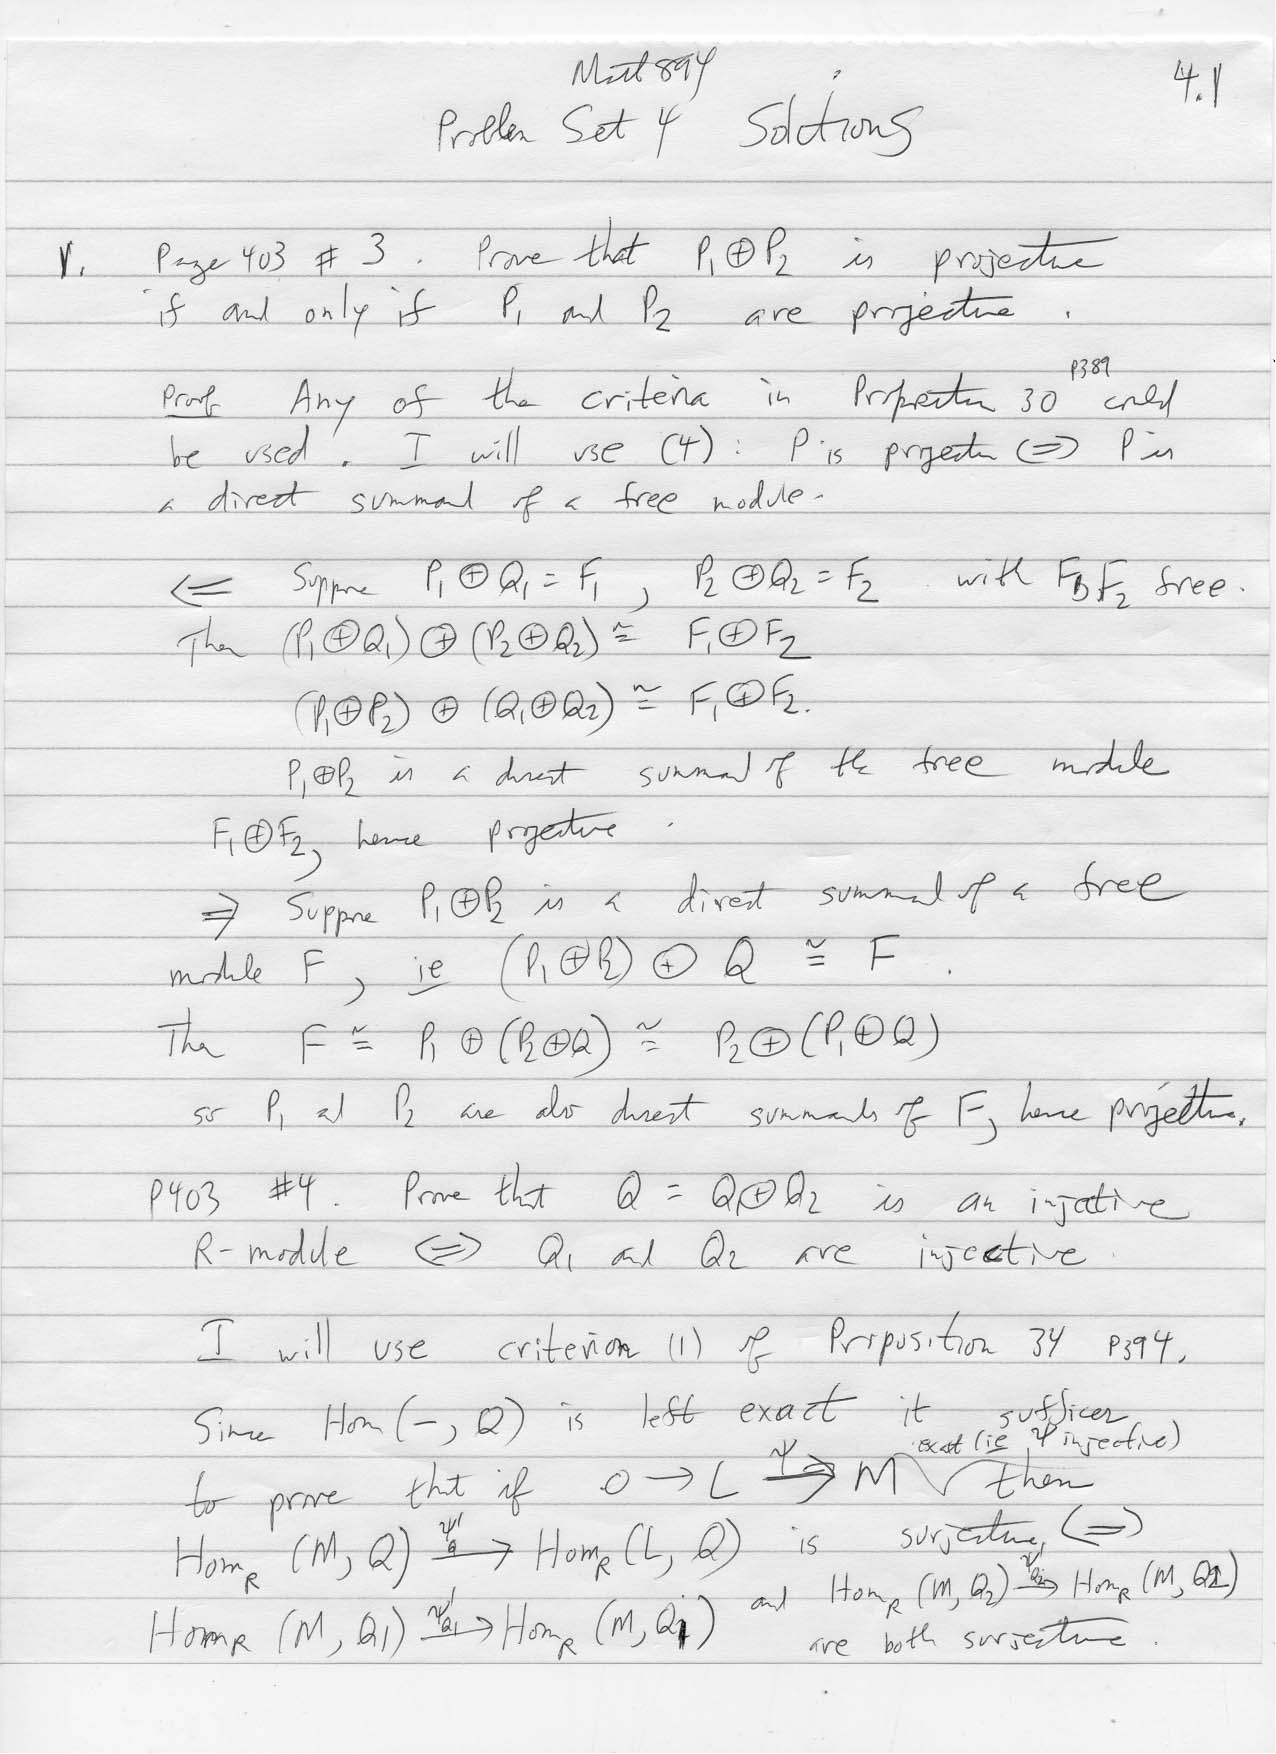 Math 894
4.1
Problem Set 4 Solutions
1. Page 403 # 3. Prove that P₁ ⊕ P₂ is projective
if and only if P₁ and P₂ are projective.
P389
Proof Any of the criteria in Proposition 30 could
be used. I will use (4): P is projective ⟺ P is
a direct summand of a free module.
⟸ Suppose P₁ ⊕ Q₁ = F₁, P₂ ⊕ Q₂ = F₂ with F₁, F₂ free.
Then (P₁ ⊕ Q₁) ⊕ (P₂ ⊕ Q₂) ≅ F₁ ⊕ F₂
(P₁ ⊕ P₂) ⊕ (Q₁ ⊕ Q₂) ≅ F₁ ⊕ F₂.
P₁ ⊕ P₂ is a direct summand of the free module
F₁ ⊕ F₂, hence projective.
⟹ Suppose P₁ ⊕ P₂ is a direct summand of a free
module F, ie (P₁ ⊕ P₂) ⊕ Q ≅ F.
Then F ≅ P₁ ⊕ (P₂ ⊕ Q) ≅ P₂ ⊕ (P₁ ⊕ Q)
so P₁ and P₂ are also direct summands of F, hence projective.
P403 #4. Prove that Q = Q₁ ⊕ Q₂ is an injective
R-module ⟺ Q₁ and Q₂ are injective.
I will use criterion (1) of Proposition 34 P394.
Since Hom(-, Q) is left exact it suffices
exact (ie ψ injective)
to prove that if 0 → L →^ψ M then
Hom_R (M, Q) →^{ψ'_Q} Hom_R (L, Q) is surjective, ⟺
Hom_R (M, Q₁) →^{ψ'_{Q₁}} Hom_R (M, Q₁) and Hom_R (M, Q₂) →^{ψ'_{Q₂}} Hom_R (M, Q₂)
are both surjective.